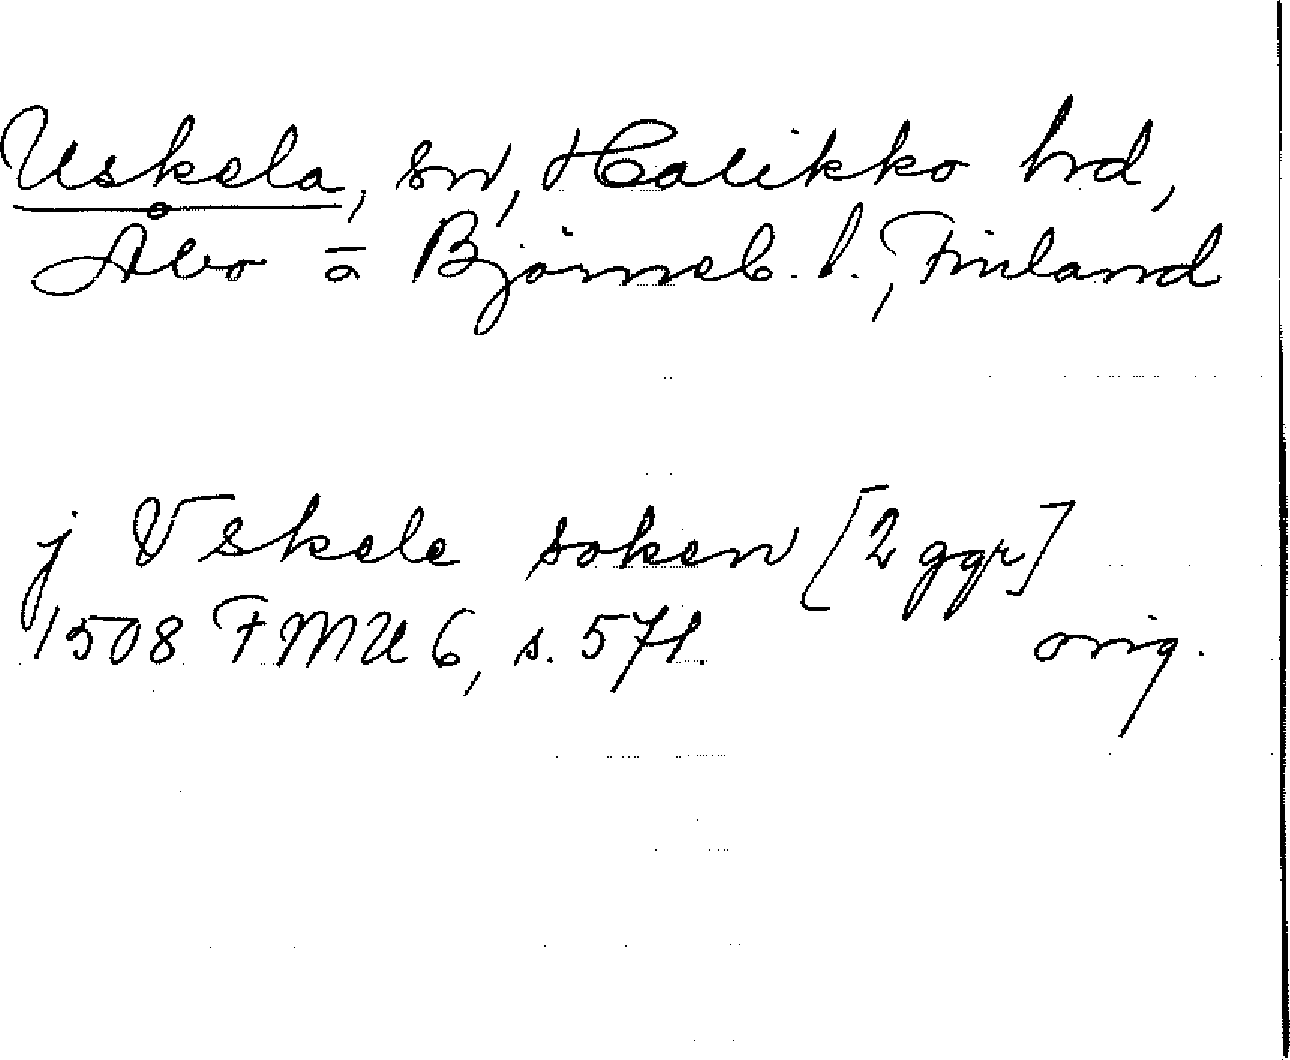 Uskela, sn, Halikko hrd,
Åbo o Björneb. l., Finland
j Vskele soken [2 ggr]
1508 FMU 6, s. 571. orig.